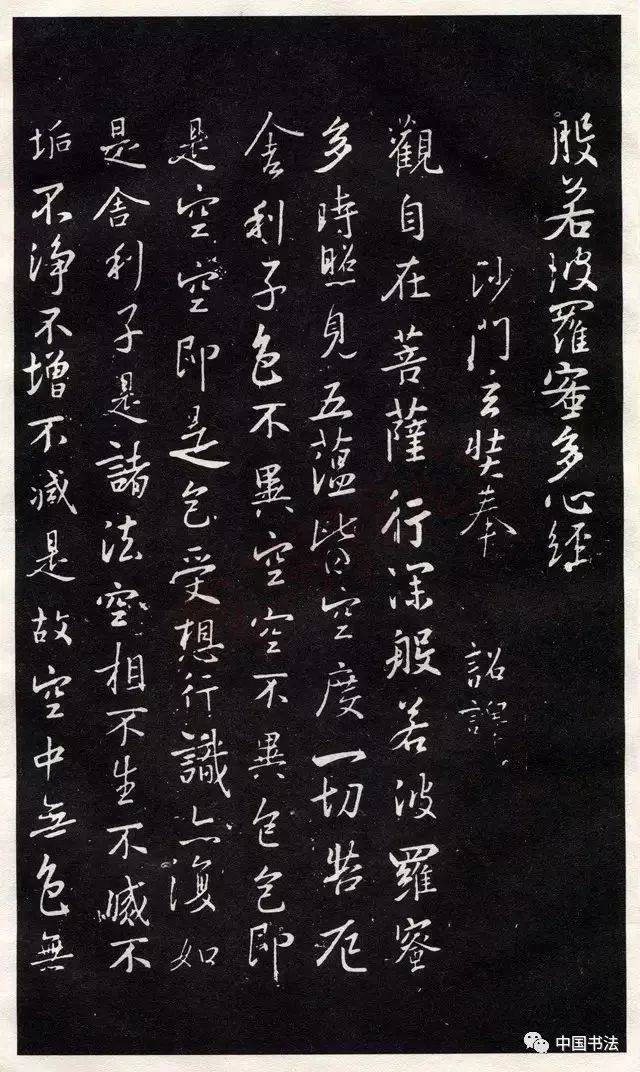 般若波羅蜜多心經
沙門玄奘奉 詔譯
觀自在菩薩行深般若波羅蜜
多時照見五蘊皆空度一切苦厄
舍利子色不異空空不異色色即
是空空即是色受想行識亦復如
是舍利子是諸法空相不生不滅不
垢不淨不增不減是故空中無色無
中国书法